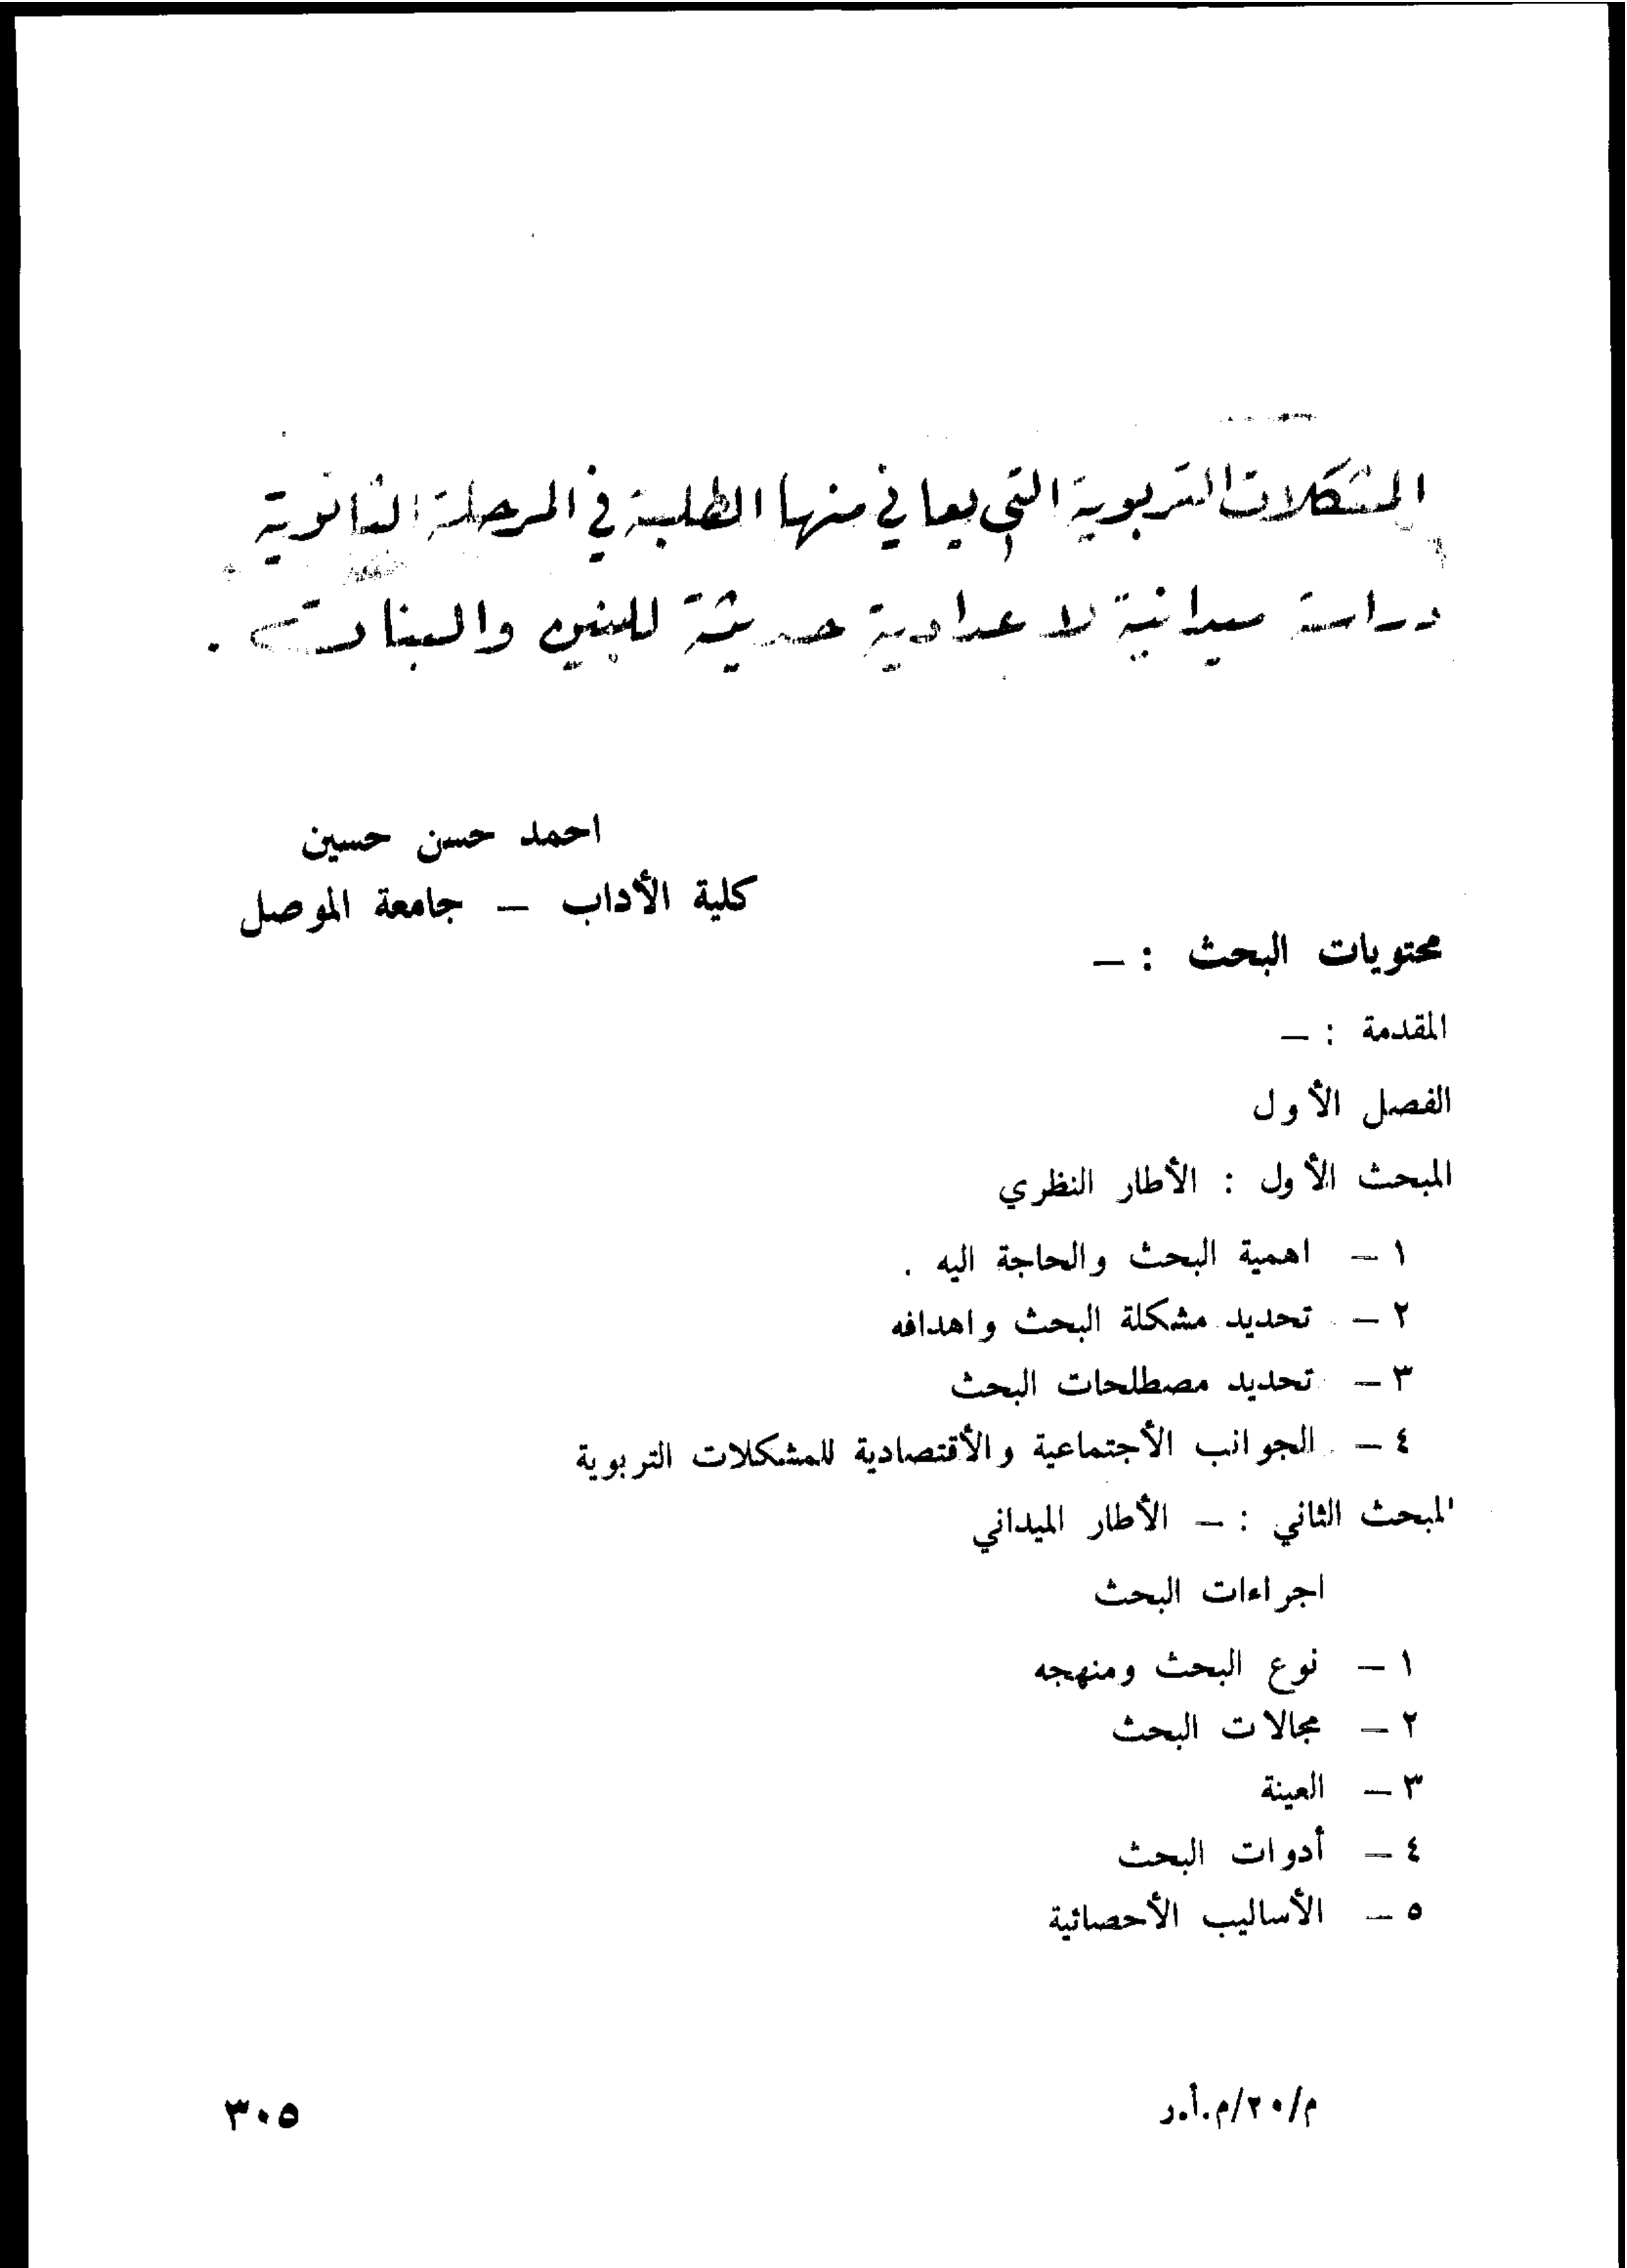 المشكلات التربوية التي يعاني منها الطلبة في المرحلة الثانوية
دراسة ميدانية لاعدادية حديثة للبنين والبنات .
احمد حسن حسين
كلية الأداب – جامعة الموصل
محتويات البحث : –
المقدمة : –
الفصل الأول
المبحث الأول : الأطار النظري
١ – اهمية البحث والحاجة اليه .
٢ – تحديد مشكلة البحث واهدافه
٣ – تحديد مصطلحات البحث
٤ – الجوانب الأجتماعية والأقتصادية للمشكلات التربوية
المبحث الثاني : – الأطار الميداني
اجراءات البحث
١ – نوع البحث ومنهجه
٢ – مجالات البحث
٣ – العينة
٤ – أدوات البحث
٥ – الأساليب الأحصائية
م/٢٠/م.أ.ر
٣٠٥